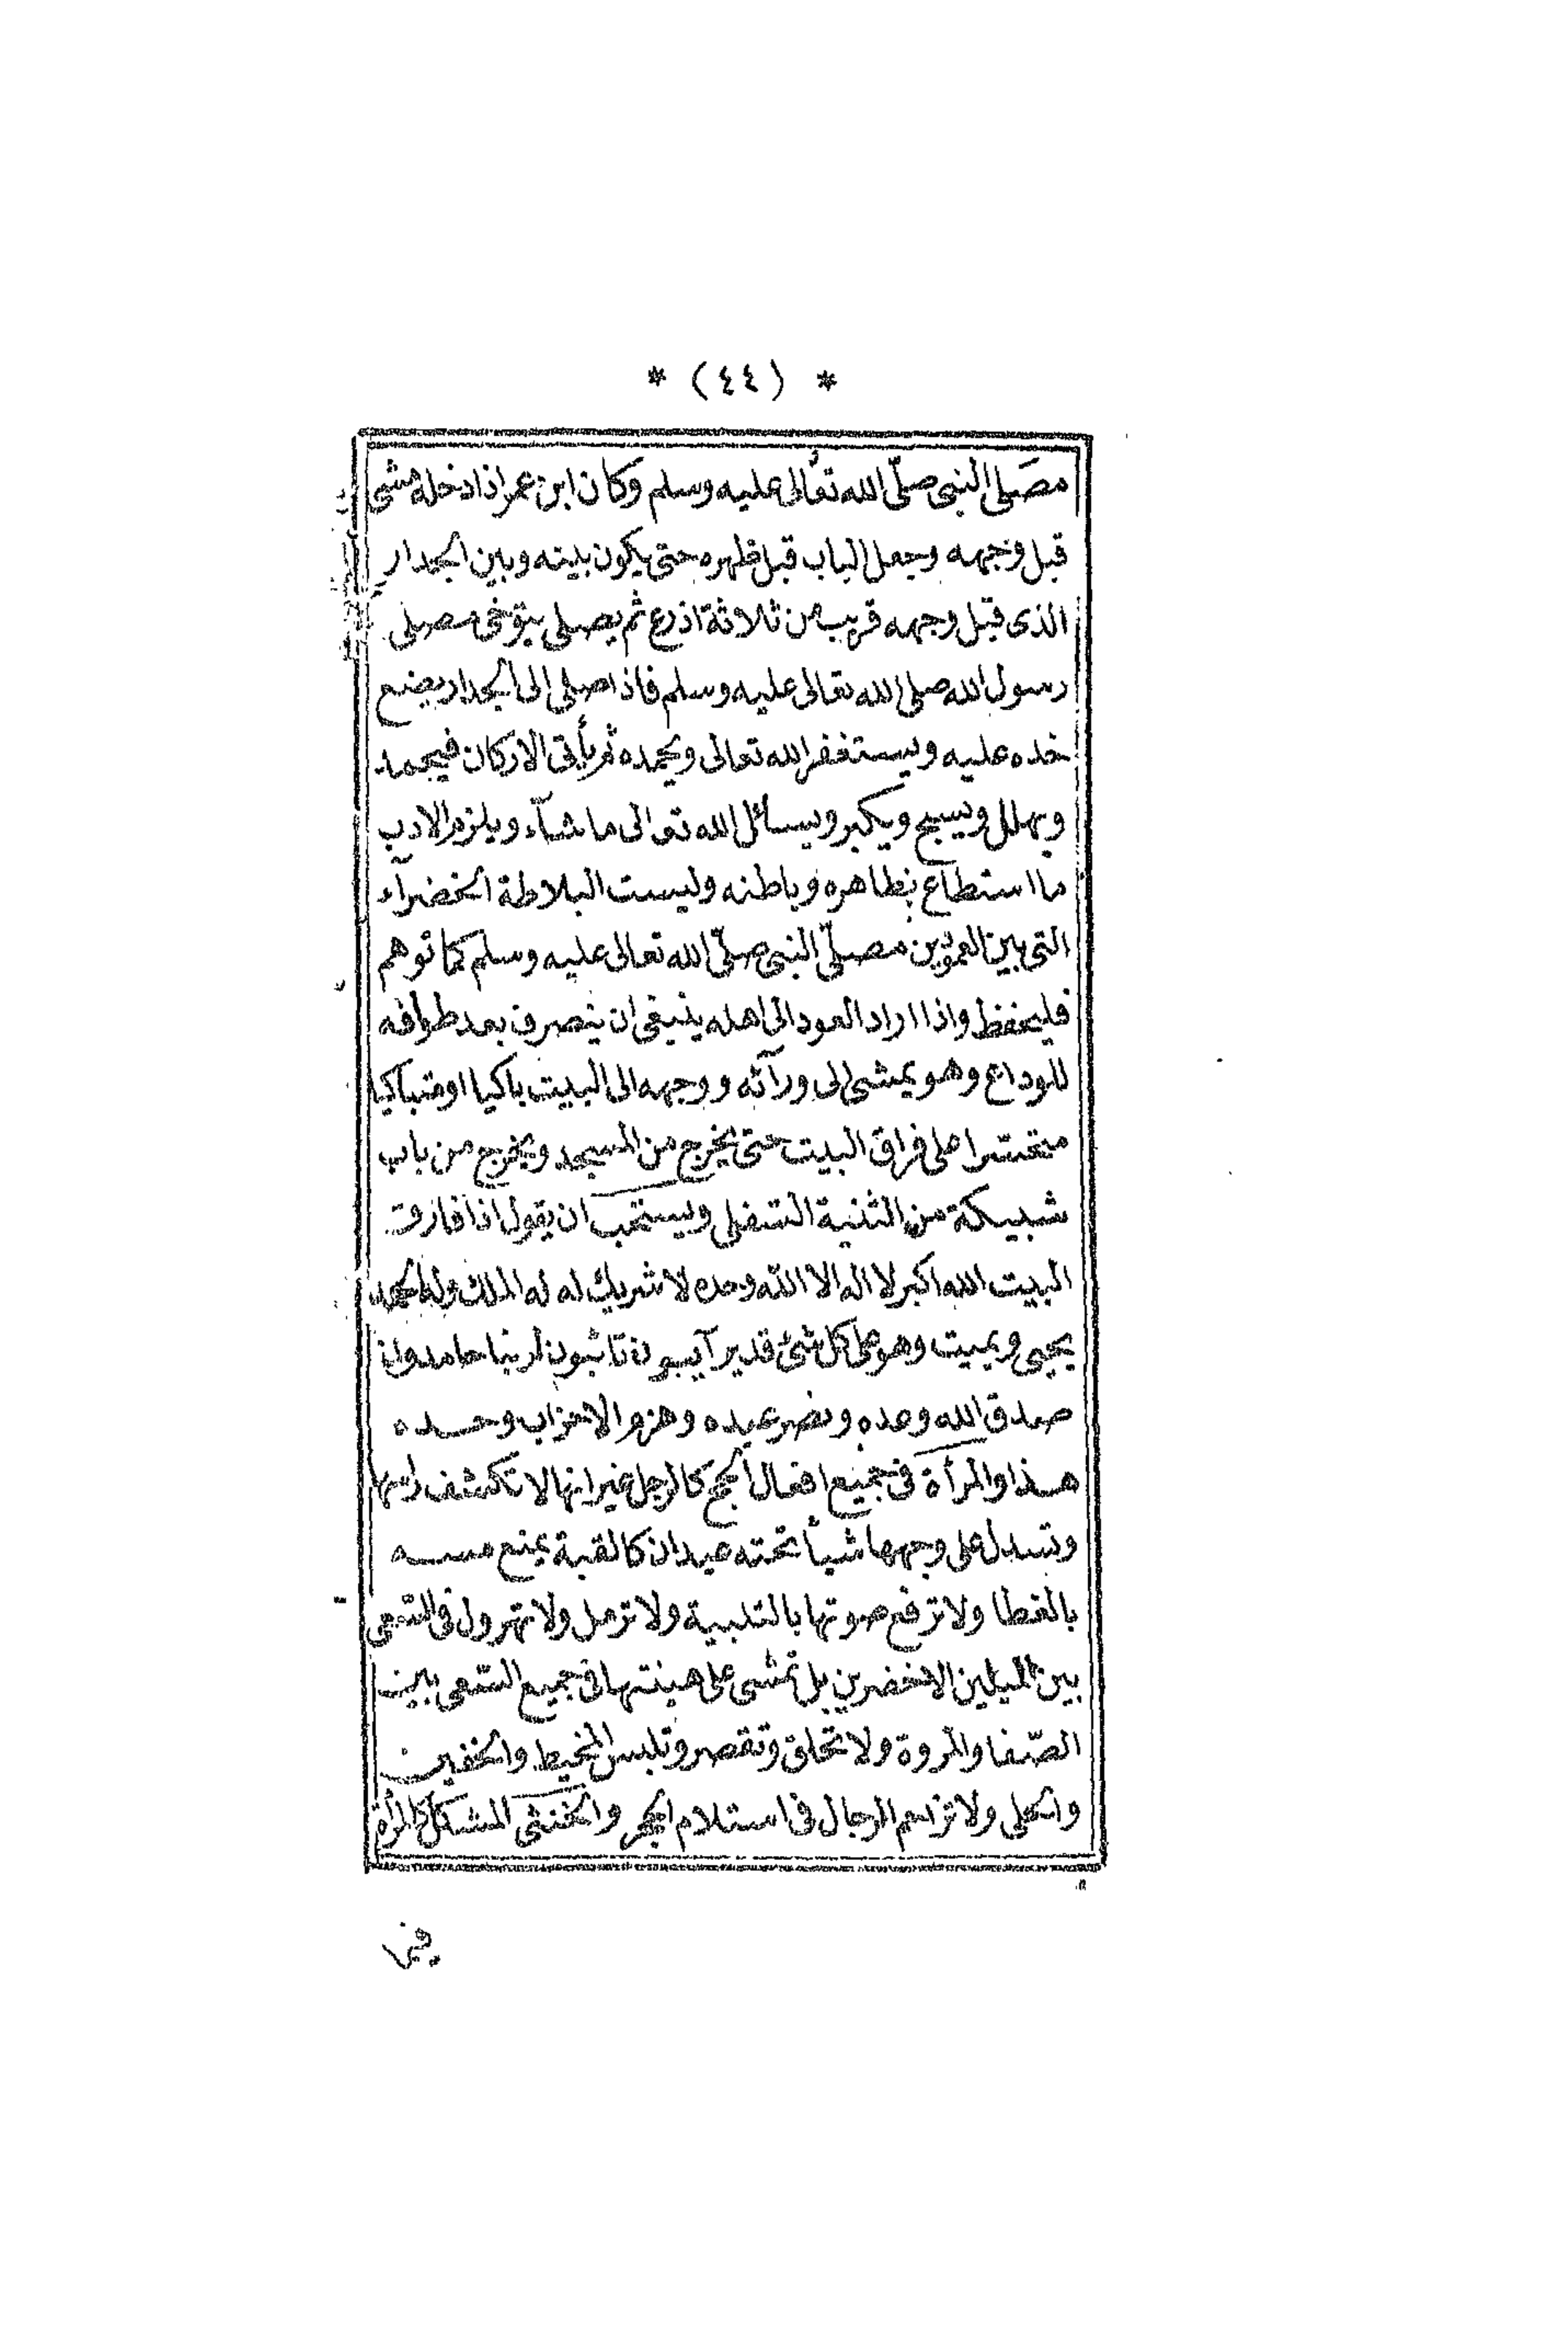 * (٤٤) *
مصَلى النبى صلّى الله تعالى عليه وسلم وكان ابن عمر اذا دخله مشى
قبل وجهه وجعل الباب قبل ظهره حتى يكون بينه وبين الجدار
الذى قبل وجهه قريب من ثلاثة اذرع ثم يصلى يتوخى مصلى
رسول الله صلى الله تعالى عليه وسلم فاذا صلى الى الجدار يضع
خده عليه ويستغفر الله تعالى ويحمده ثم يأتى الاركان فيحمد
ويهلل ويسبح ويكبر ويسائل الله تعالى ما شآء ويلزم الادب
ما استطاع بظاهره وباطنه وليست البلاطة الخضرآء
التى بين العمودين مصلّى النبى صلّى الله تعالى عليه وسلم كما توهم
فليحفظ واذا اراد العود الى اهله ينبغى ان ينصرف بعد طوافه
للوداع وهو يمشى الى ورآئه ووجهه الى البيت باكيا او متباكيا
متحسرا على فراق البيت حتى يخرج من المسجد ويخرج من باب
شبيكة من الثنية السّفلى ويستحب ان يقول اذا فارق
البيت الله اكبر لا اله الا الله وحده لا شريك له له الملك وله الحمد
يحيى ويميت وهو على كل شئ قدير آيبون تائبون لربنا حامدون
صدق الله وعده ونصر عبده وهزم الاحزاب وحده
هذا والمرأة فى جميع افعال الحج كالرجل غير انها لا تكشف رأسها
وتسدل على وجهها شيأ تحته عيدان كالقبة يمنع مسه
بالغطا ولا ترفع صوتها بالتلبية ولا ترمل ولا تهرول فى السّعى
بين الميلين الاخضرين بل تمشى على هينتها فى جميع السّعى بين
الصّفا والمروة ولا تحلق وتقصر وتلبس المخيط والخفين
والحلى ولا تزاحم الرجال فى استلام الحجر والخنثى المشكل كالمرأة
فيما